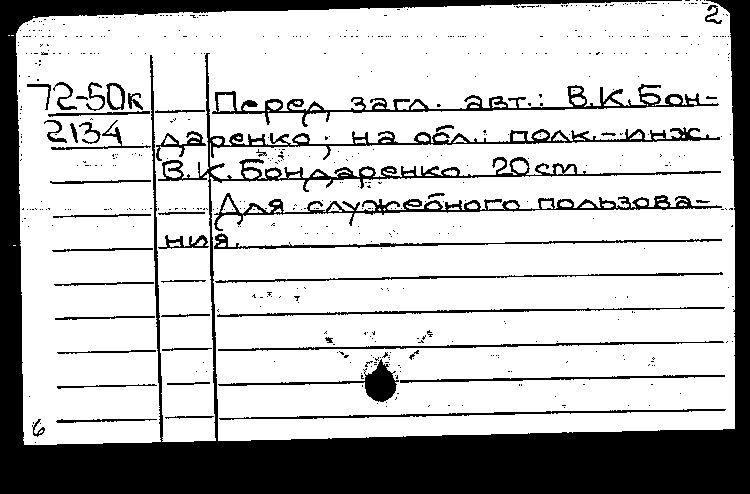 2
72-50к Перед загл. авт.: В.К.Бон-
2134 даренко; на обл.: полк.-инж.
В.К.Бондаренко. 20 cm.
Для служебного пользова-
ния.
6